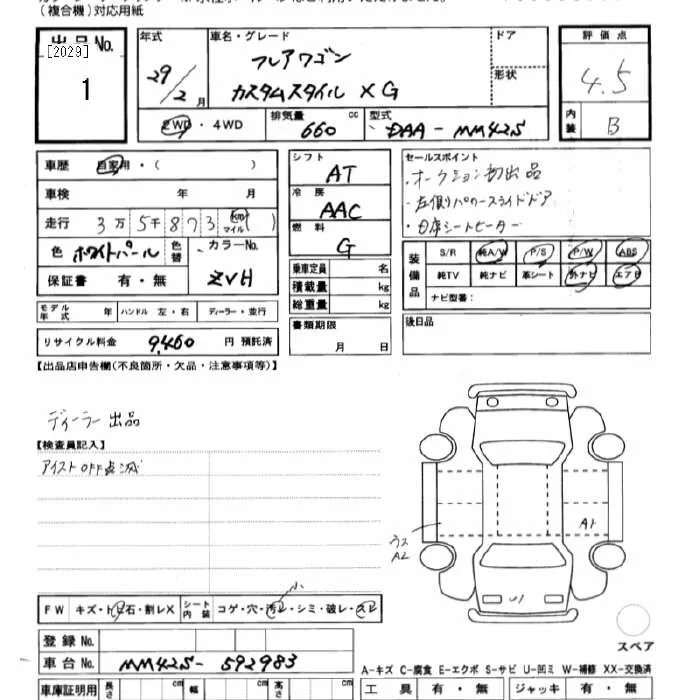 (複合機)対応用紙
出品No.
[2029]
1
年式
29/2月
車名・グレード
フレアワゴン
カスタムスタイル XG
ドア
形状
評価点
4.5
内装
B
2WD・4WD
排気量
660 cc
型式
DAA-MM42S
車歴 自家用・( )
車検 年 月
走行 3万5千873 km マイル ( )
色 ホワイトパール
色替
カラーNo.
ZVH
保証書 有・無
シフト
AT
冷房
AAC
燃料
G
乗車定員 名
積載量 kg
総重量 kg
書類期限
月 日
セールスポイント
・オークション初出品
・左側パワースライドドア
・シートヒーター
装備品
S/R 純A/W P/S P/W ABS
純TV 純ナビ 革シート 外ナビ エアB
ナビ型番:
後日品
モデル年式 年 ハンドル 左・右 ディーラー・並行
リサイクル料金 9,460 円 預託済
【出品店申告欄(不良箇所・欠品・注意事項等)】
ディーラー出品
【検査員記入】
アイストOFF点滅
ウス
A2
A1
U1
FW キズ・ト石・割レX
シート内装 コゲ・穴・汚レ・シミ・破レ・スレ
小
スペア
登録No.
車台No. MM42S-592983
A-キズ C-腐食 E-エクボ S-サビ U-凹ミ W-補修 XX-交換済
車庫証明用 長さ cm 幅 cm 高さ cm
工具 有・無 ジャッキ 有・無